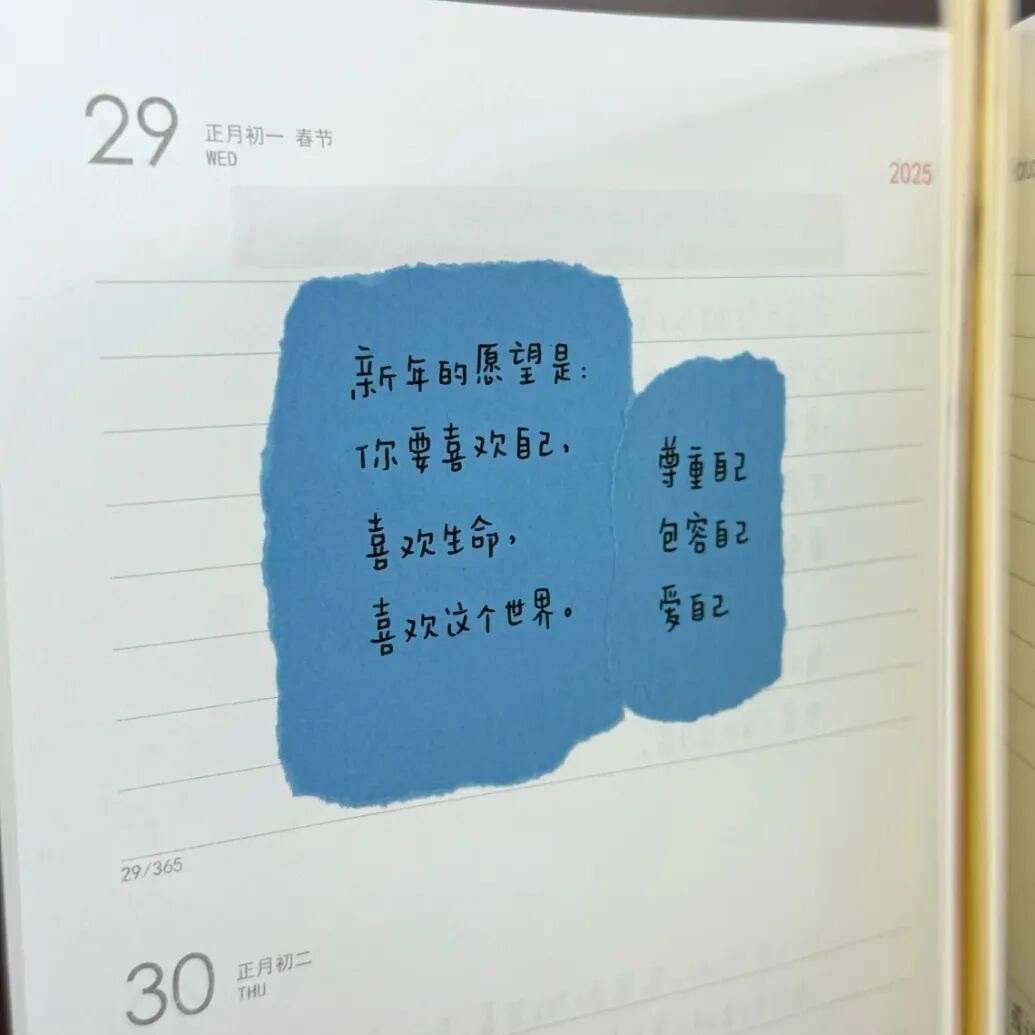 29 正月初一 春节
WED
2025
新年的愿望是：
你要喜欢自己，
喜欢生命，
喜欢这个世界。
尊重自己
包容自己
爱自己
29/365
30 正月初二
THU